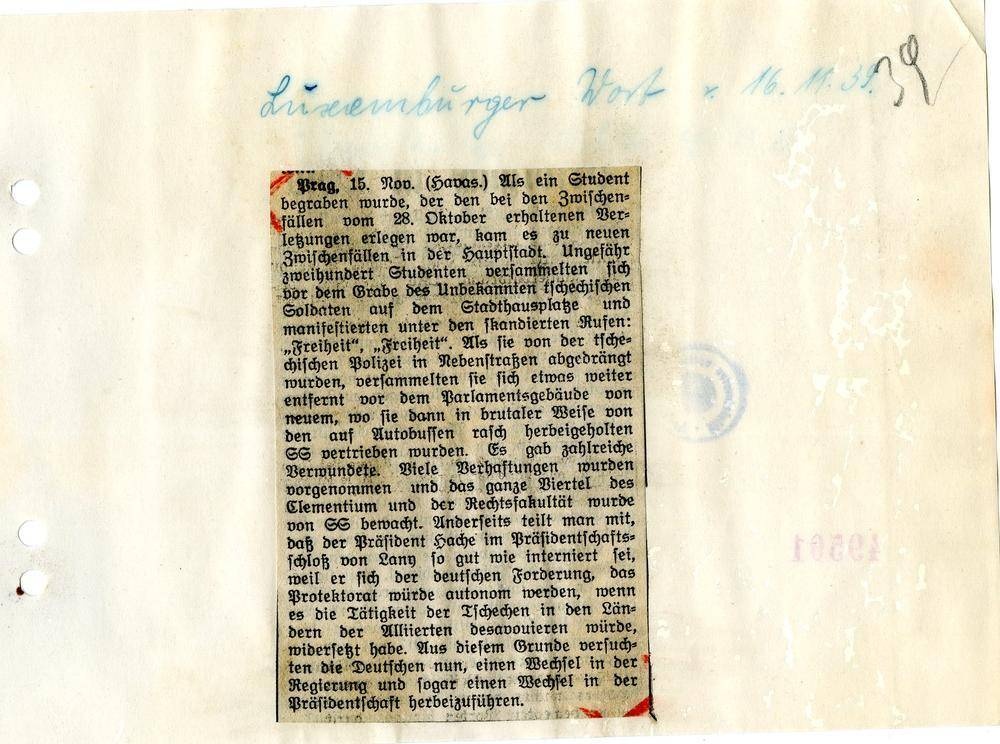 Luxemburger Wort v. 16.11.39.
39
Prag, 15. Nov. (Havas.) Als ein Student
begraben wurde, der den bei den Zwischen-
fällen vom 28. Oktober erhaltenen Ver-
letzungen erlegen war, kam es zu neuen
Zwischenfällen in der Hauptstadt. Ungefähr
zweihundert Studenten versammelten sich
vor dem Grabe des Unbekannten tschechischen
Soldaten auf dem Stadthausplatze und
manifestierten unter den skandierten Rufen:
„Freiheit“, „Freiheit“. Als sie von der tsche-
chischen Polizei in Nebenstraßen abgedrängt
wurden, versammelten sie sich etwas weiter
entfernt vor dem Parlamentsgebäude von
neuem, wo sie dann in brutaler Weise von
den auf Autobussen rasch herbeigeholten
SS vertrieben wurden. Es gab zahlreiche
Verwundete. Viele Verhaftungen wurden
vorgenommen und das ganze Viertel des
Clementium und der Rechtsfakultät wurde
von SS bewacht. Anderseits teilt man mit,
daß der Präsident Hache im Präsidentschafts-
schloß von Lany so gut wie interniert sei,
weil er sich der deutschen Forderung, das
Protektorat würde autonom werden, wenn
es die Tätigkeit der Tschechen in den Län-
dern der Alliierten desavouieren würde,
widersetzt habe. Aus diesem Grunde versuch-
ten die Deutschen nun, einen Wechsel in der
Regierung und sogar einen Wechsel in der
Präsidentschaft herbeizuführen.
49561